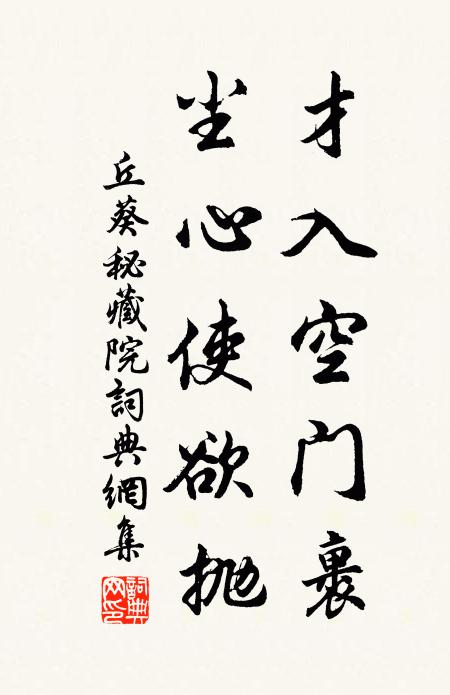 才入空門裏
尘心使欲抛
丘葵秘藏院詞典網集
詞典网印